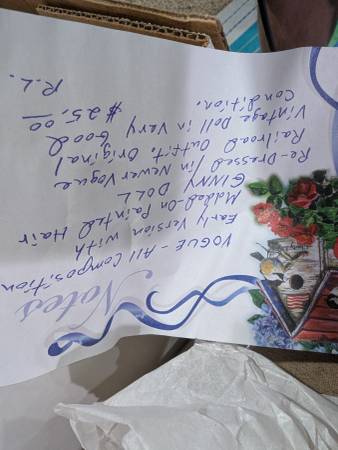 Notes
VOGUE - All Composition
Early Version with
Molded-on Painted Hair
GINNY DOLL
Re-Dressed in Newer Vogue
Railroad Outfit. Original
Vintage Doll in Very Good
Condition.
$25.00
R.L.